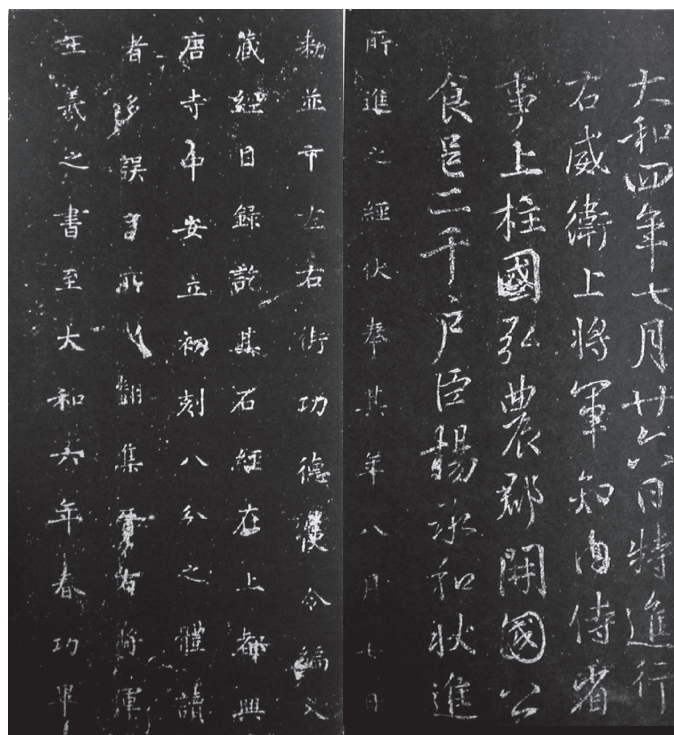 大和四年七月廿六日特進行
右威衛上將軍知內侍省
事上柱國弘農郡開國公
食邑二千戶臣楊承和狀進
所進之經伏奉其年八月七日
勅並下左右街功德使令編入
藏經目錄訖其石經在上都興
唐寺中安立初刻八分之體讀
者多誤所以翻集晉右將軍
王羲之書至大和六年春功畢